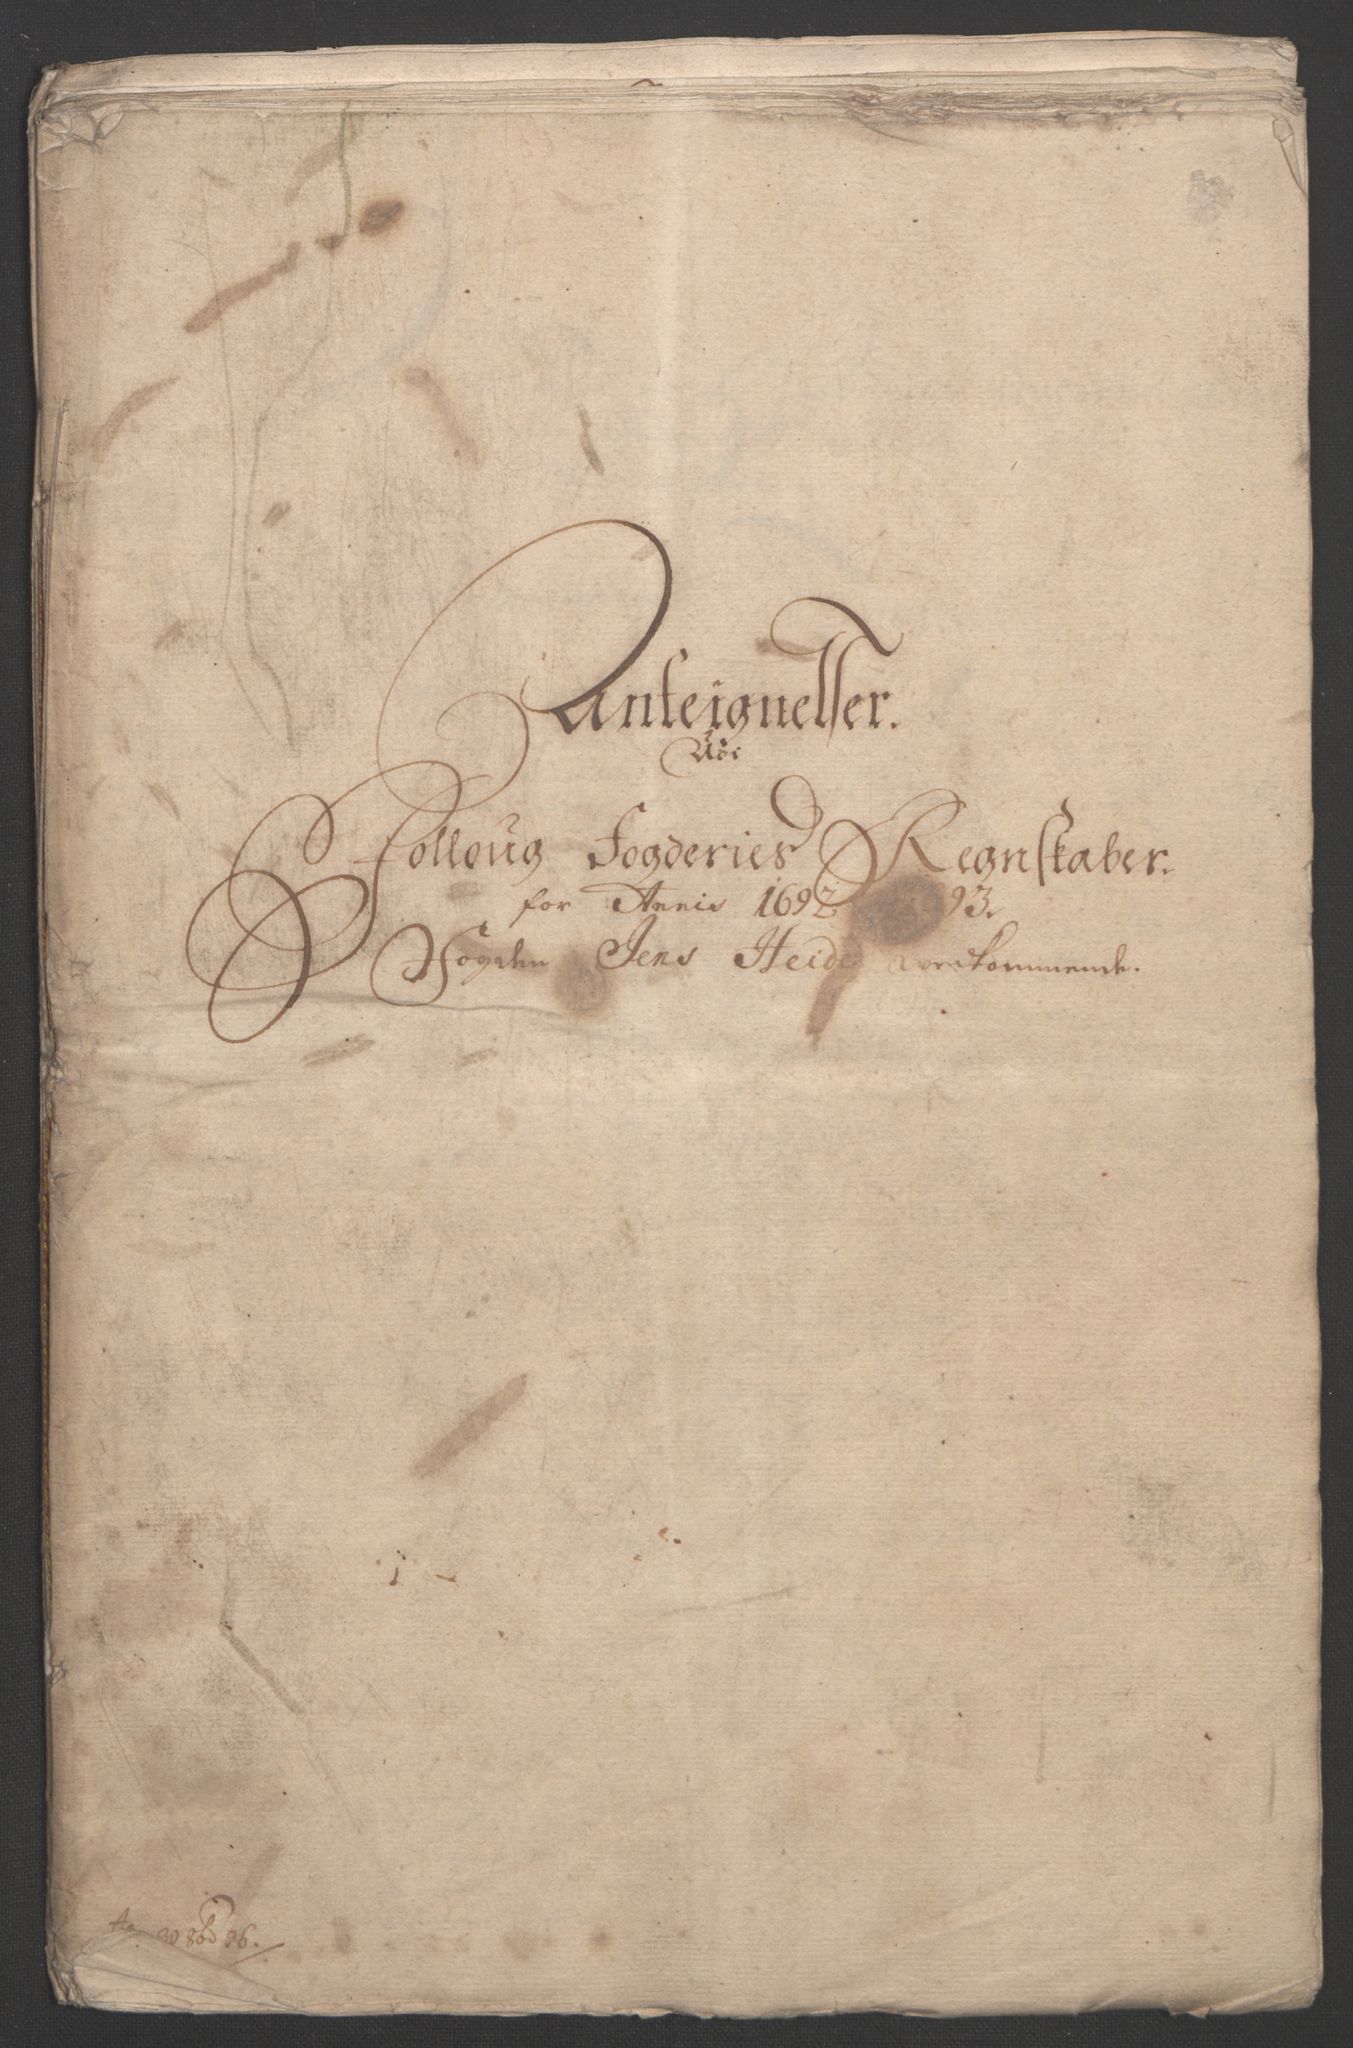 Anteignelser.
Udi
Folloug Fogderies Regnskaber.
for Annis 1692 93.
Fogden Jens Heide vedkommende.